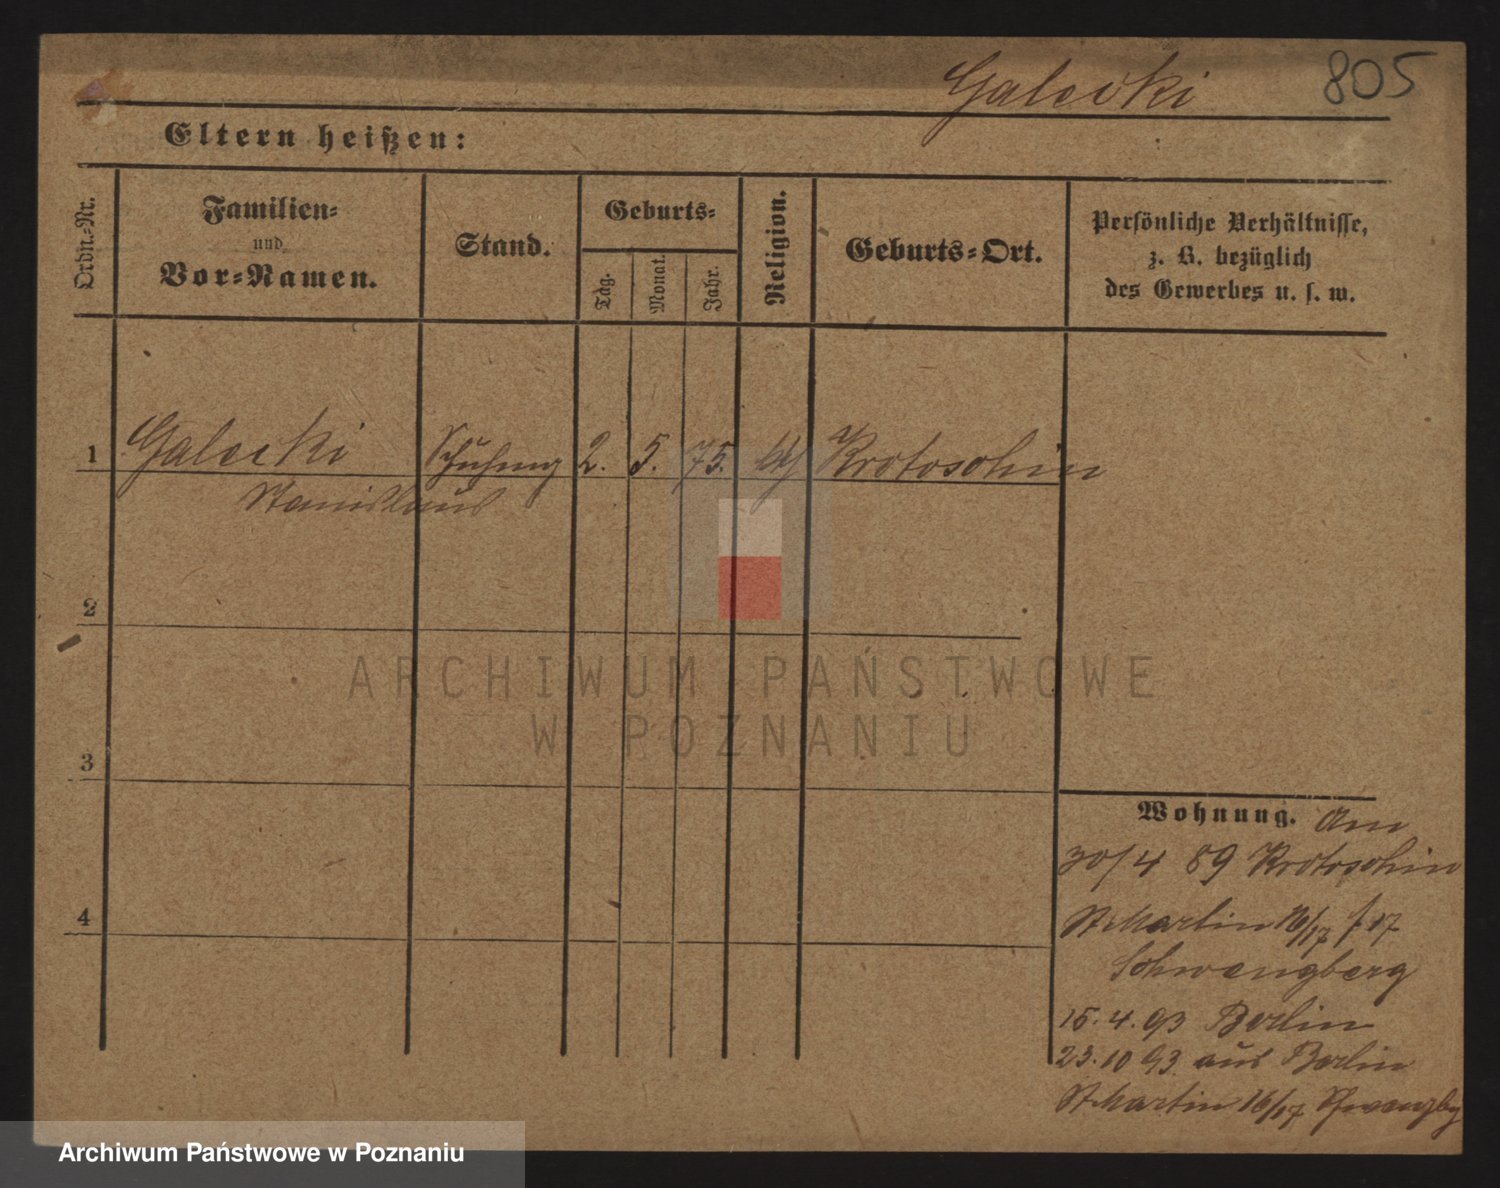 Galecki 805
Eltern heißen:
Ordn.-Nr.
Familien-
und
Vor-Namen.
Stand.
Geburts-
Tag.
Monat.
Jahr.
Religion.
Geburts-Ort.
Persönliche Verhältnisse,
z. B. bezüglich
des Gewerbes u. s. w.
1 Galecki 2. 5. 75. Krotoschin
Stanislaus
2
3
4
Wohnung. Am
30/4 89 Krotoschin
St Martin 16/17
15. 4. 93 Berlin
23. 10 93 aus Berlin
St Martin 16/17
ARCHIWUM PAŃSTWOWE
W POZNANIU
Archiwum Państwowe w Poznaniu